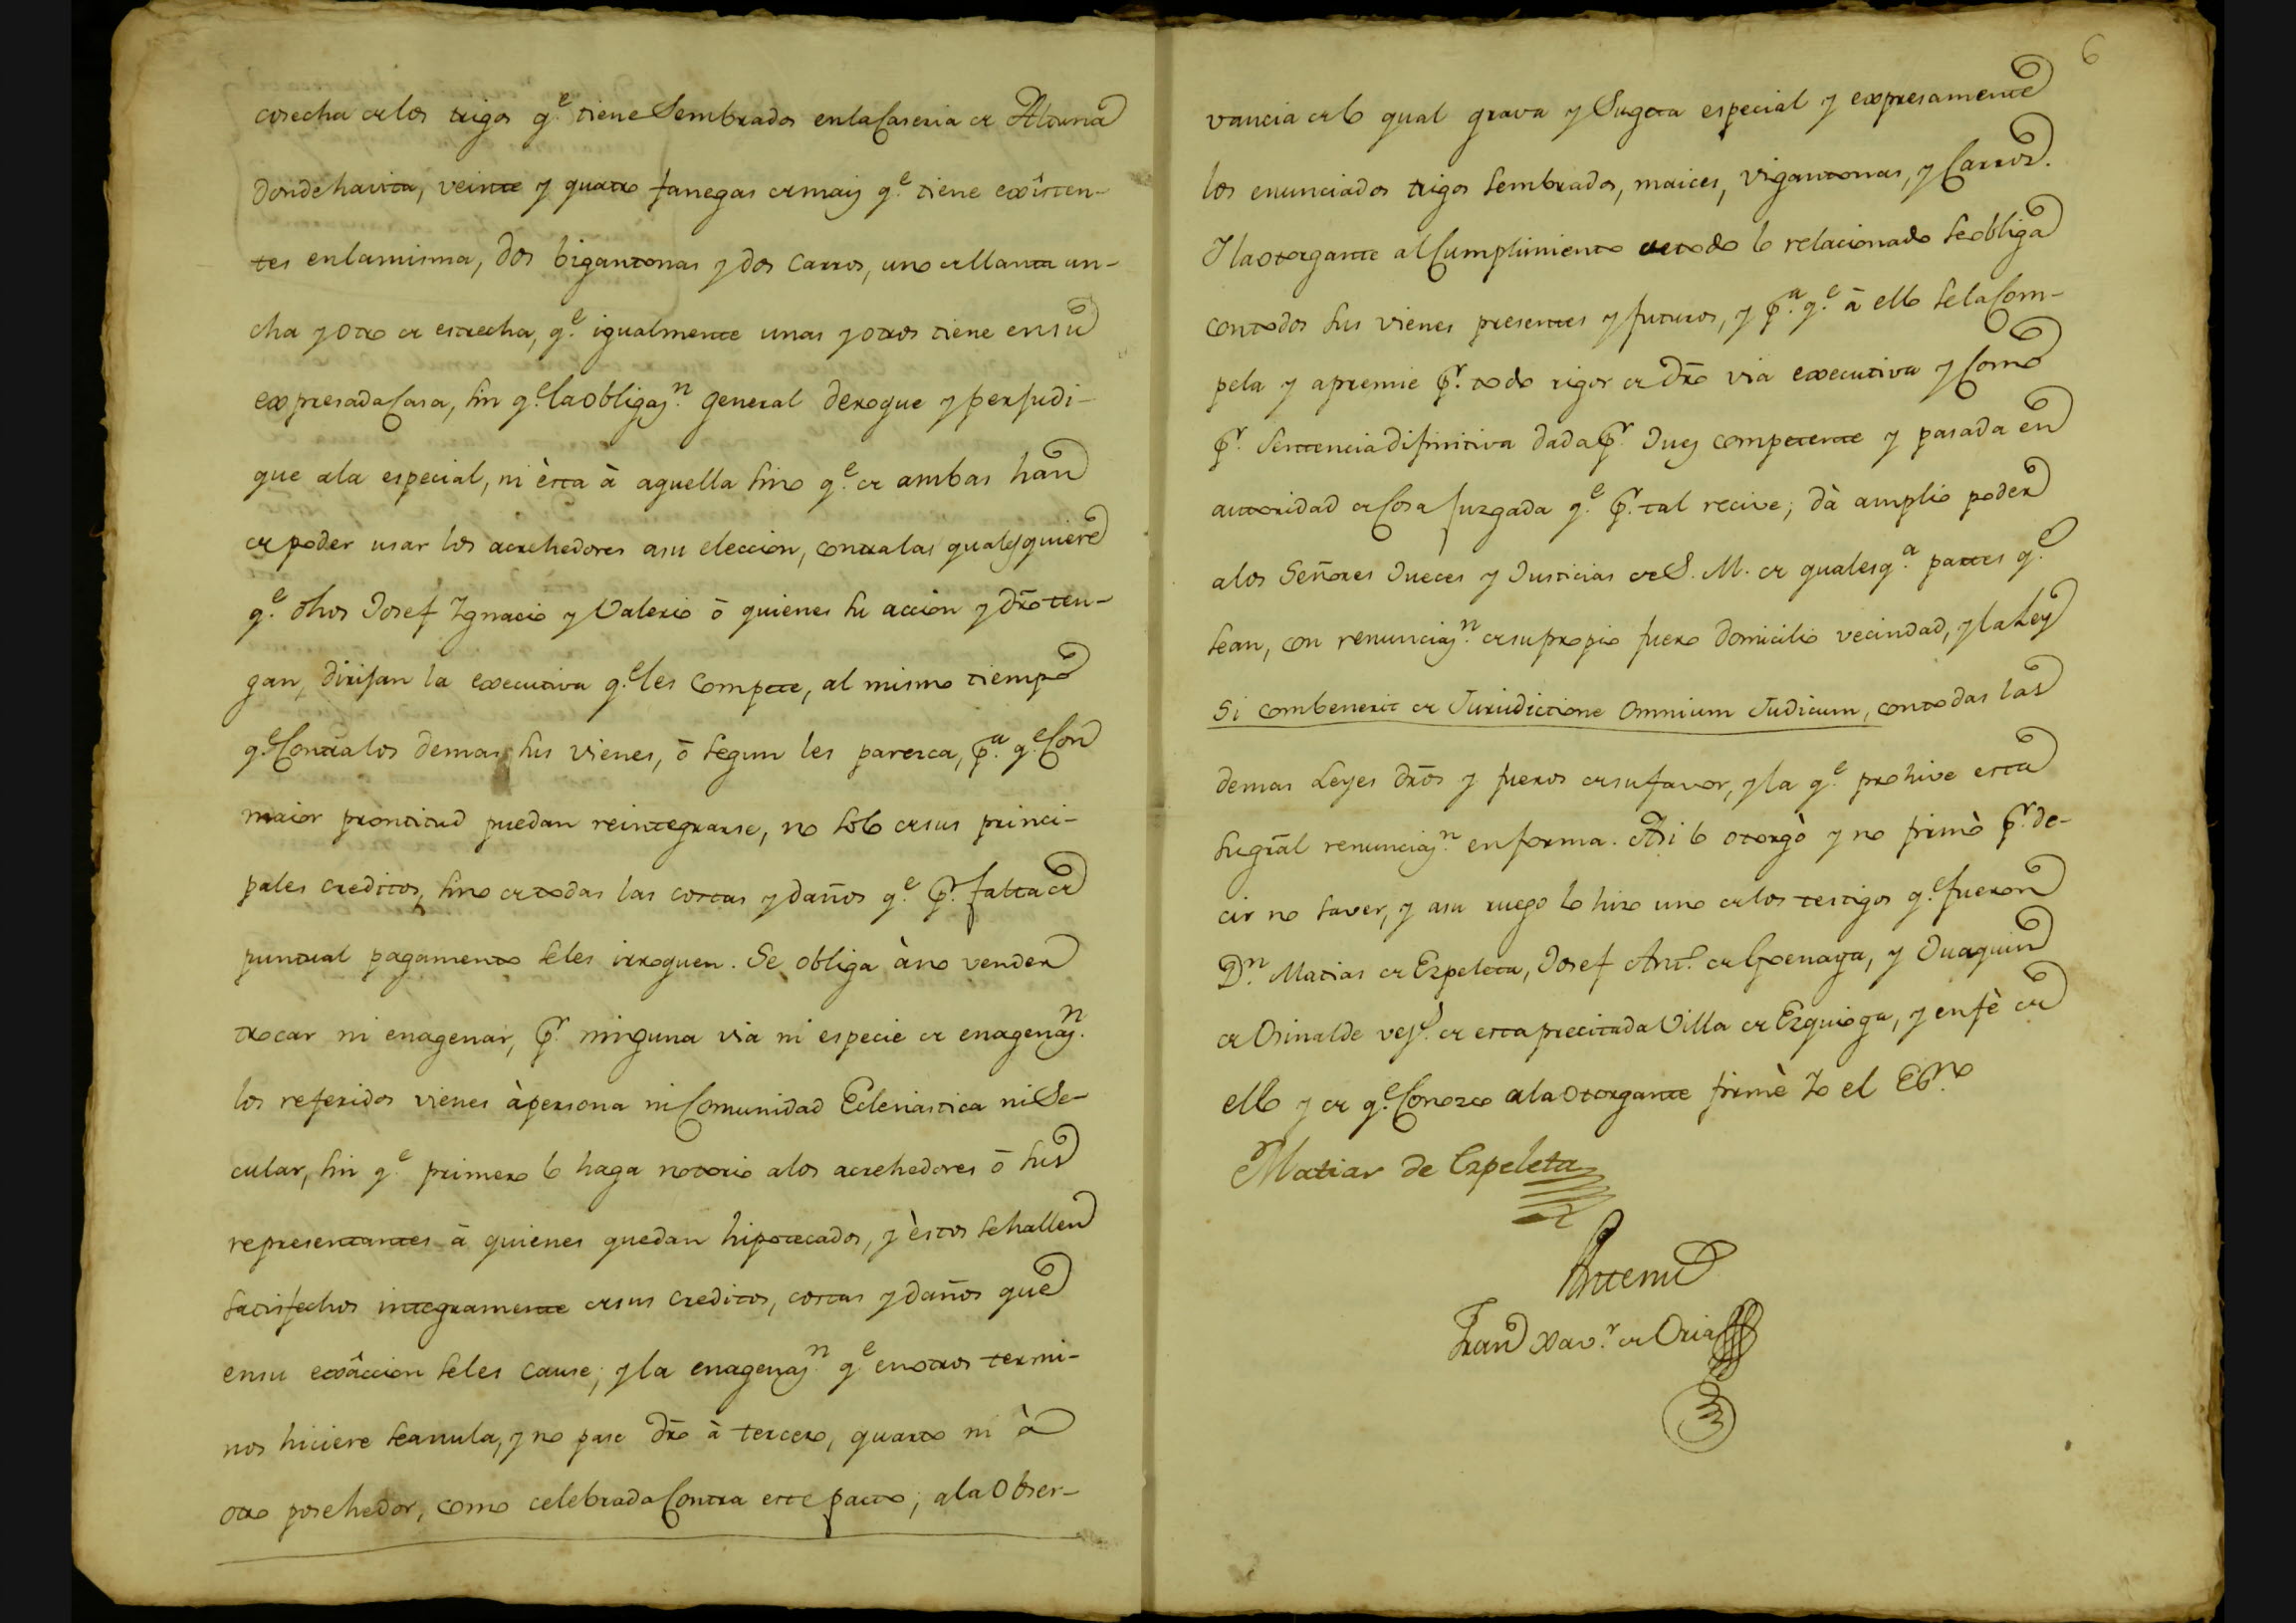 cosecha de los trigos q.e tiene Sembrados en la Caseria de Altuna
donde havita, veinte y quatro fanegas de maiz q.e tiene exîsten-
tes en la misma, dos bigantonas y dos Carros, uno de llanta an-
cha y otro de estrecha, q.e igualmente unas y otros tiene en su
expresada Casa, sin q.e la obligaz.n general derogue y perjudi-
que ala especial, ni èsta à aquella sino q.e de ambas han
de poder usar los acrehedores asu eleccion, contra las quales quiere
q.e dhos Josef Ygnacio y Valerio ô quienes su accion y dro ten-
gan, dirijan la executiva q.e les Compete, al mismo tiempo
q.e Contra los demas sus vienes, ô segun les paresca, p.a q.e Con
maior prontitud puedan reintegrarse, no solo de sus princi-
pales creditos, sino de todas las costas y daños q.e p.r falta de
puntual pagamento seles irroguen. Se obliga àno vender
trocar ni enagenar, p.r ninguna via ni especie de enagenaz.n
los referidos vienes àpersona ni Comunidad Eclesiastica ni Se-
cular, sin q.e primero lo haga notorio alos acrehedores ô sus
representantes â quienes quedan hipotecados, y èstos se hallen
satisfechos integramente de sus Creditos, costas y daños que
ensu exâccion seles cause; y la enagenaz.n q.e en otros termi-
nos hiciere sea nula, y no pase dro â tercero, quarto ni à
otro posehedor, como celebrada Contra este pacto; ala Obser-
6
vancia de lo qual grava y Sugeta especial y expresamente
los enunciados trigos sembrados, maices, vigantonas, y Carros.
Y la otorgante al Cumplimiento de todo lo relacionado se obliga
con todos sus vienes presentes y futuros, y p.a q.e â ello se la Com-
pela y apremie p.r todo rigor de dro via executiva y Como
p.r Sentencia difinitiva dada p.r Juez competente y pasada en
autoridad de Cosa Juzgada q.e p.r tal recive; dà amplio poder
alos Señores Jueces y Justicias de S. M. de qualesq.a partes q.e
sean, con renunciaz.n de su propio fuero domicilio vecindad, y la Ley
Si combenerit de Jurisdictione Omnium Judicum, con todas las
demas Leyes dros y fueros de su favor, y la q.e prohive esta
su gral renunciaz.n en forma. Asi lo otorgò y no firmò p.r de-
cir no saver, y asu ruego lo hizo uno de los testigos q.e fueron
D.n Matias de Ezpeleta, Josef Ant.o de Goenaga, y Juaquin
de Osinalde vez.s de esta precitada Villa de Ezquioga, y en fè de
ello y de q.e Conozco ala otorgante firmè Yo el Ess.no
Matias de Ezpeleta
Antemi
Fran Xav.r de Oria